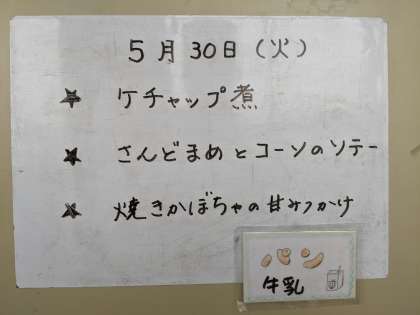 5月30日(火)
★ ケチャップ煮
★ さんどまめとコーンのソテー
★ 焼きかぼちゃの甘みつかけ
パン
牛乳